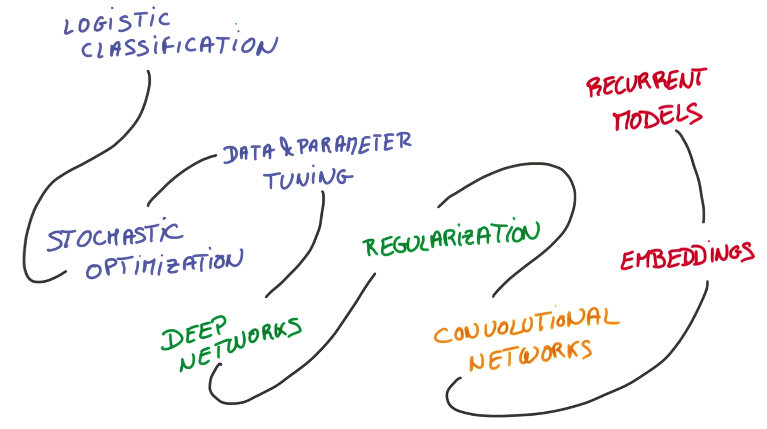 LOGISTIC
CLASSIFICATION
STOCHASTIC
OPTIMIZATION
DATA & PARAMETER
TUNING
DEEP
NETWORKS
REGULARIZATION
CONVOLUTIONAL
NETWORKS
EMBEDDINGS
RECURRENT
MODELS